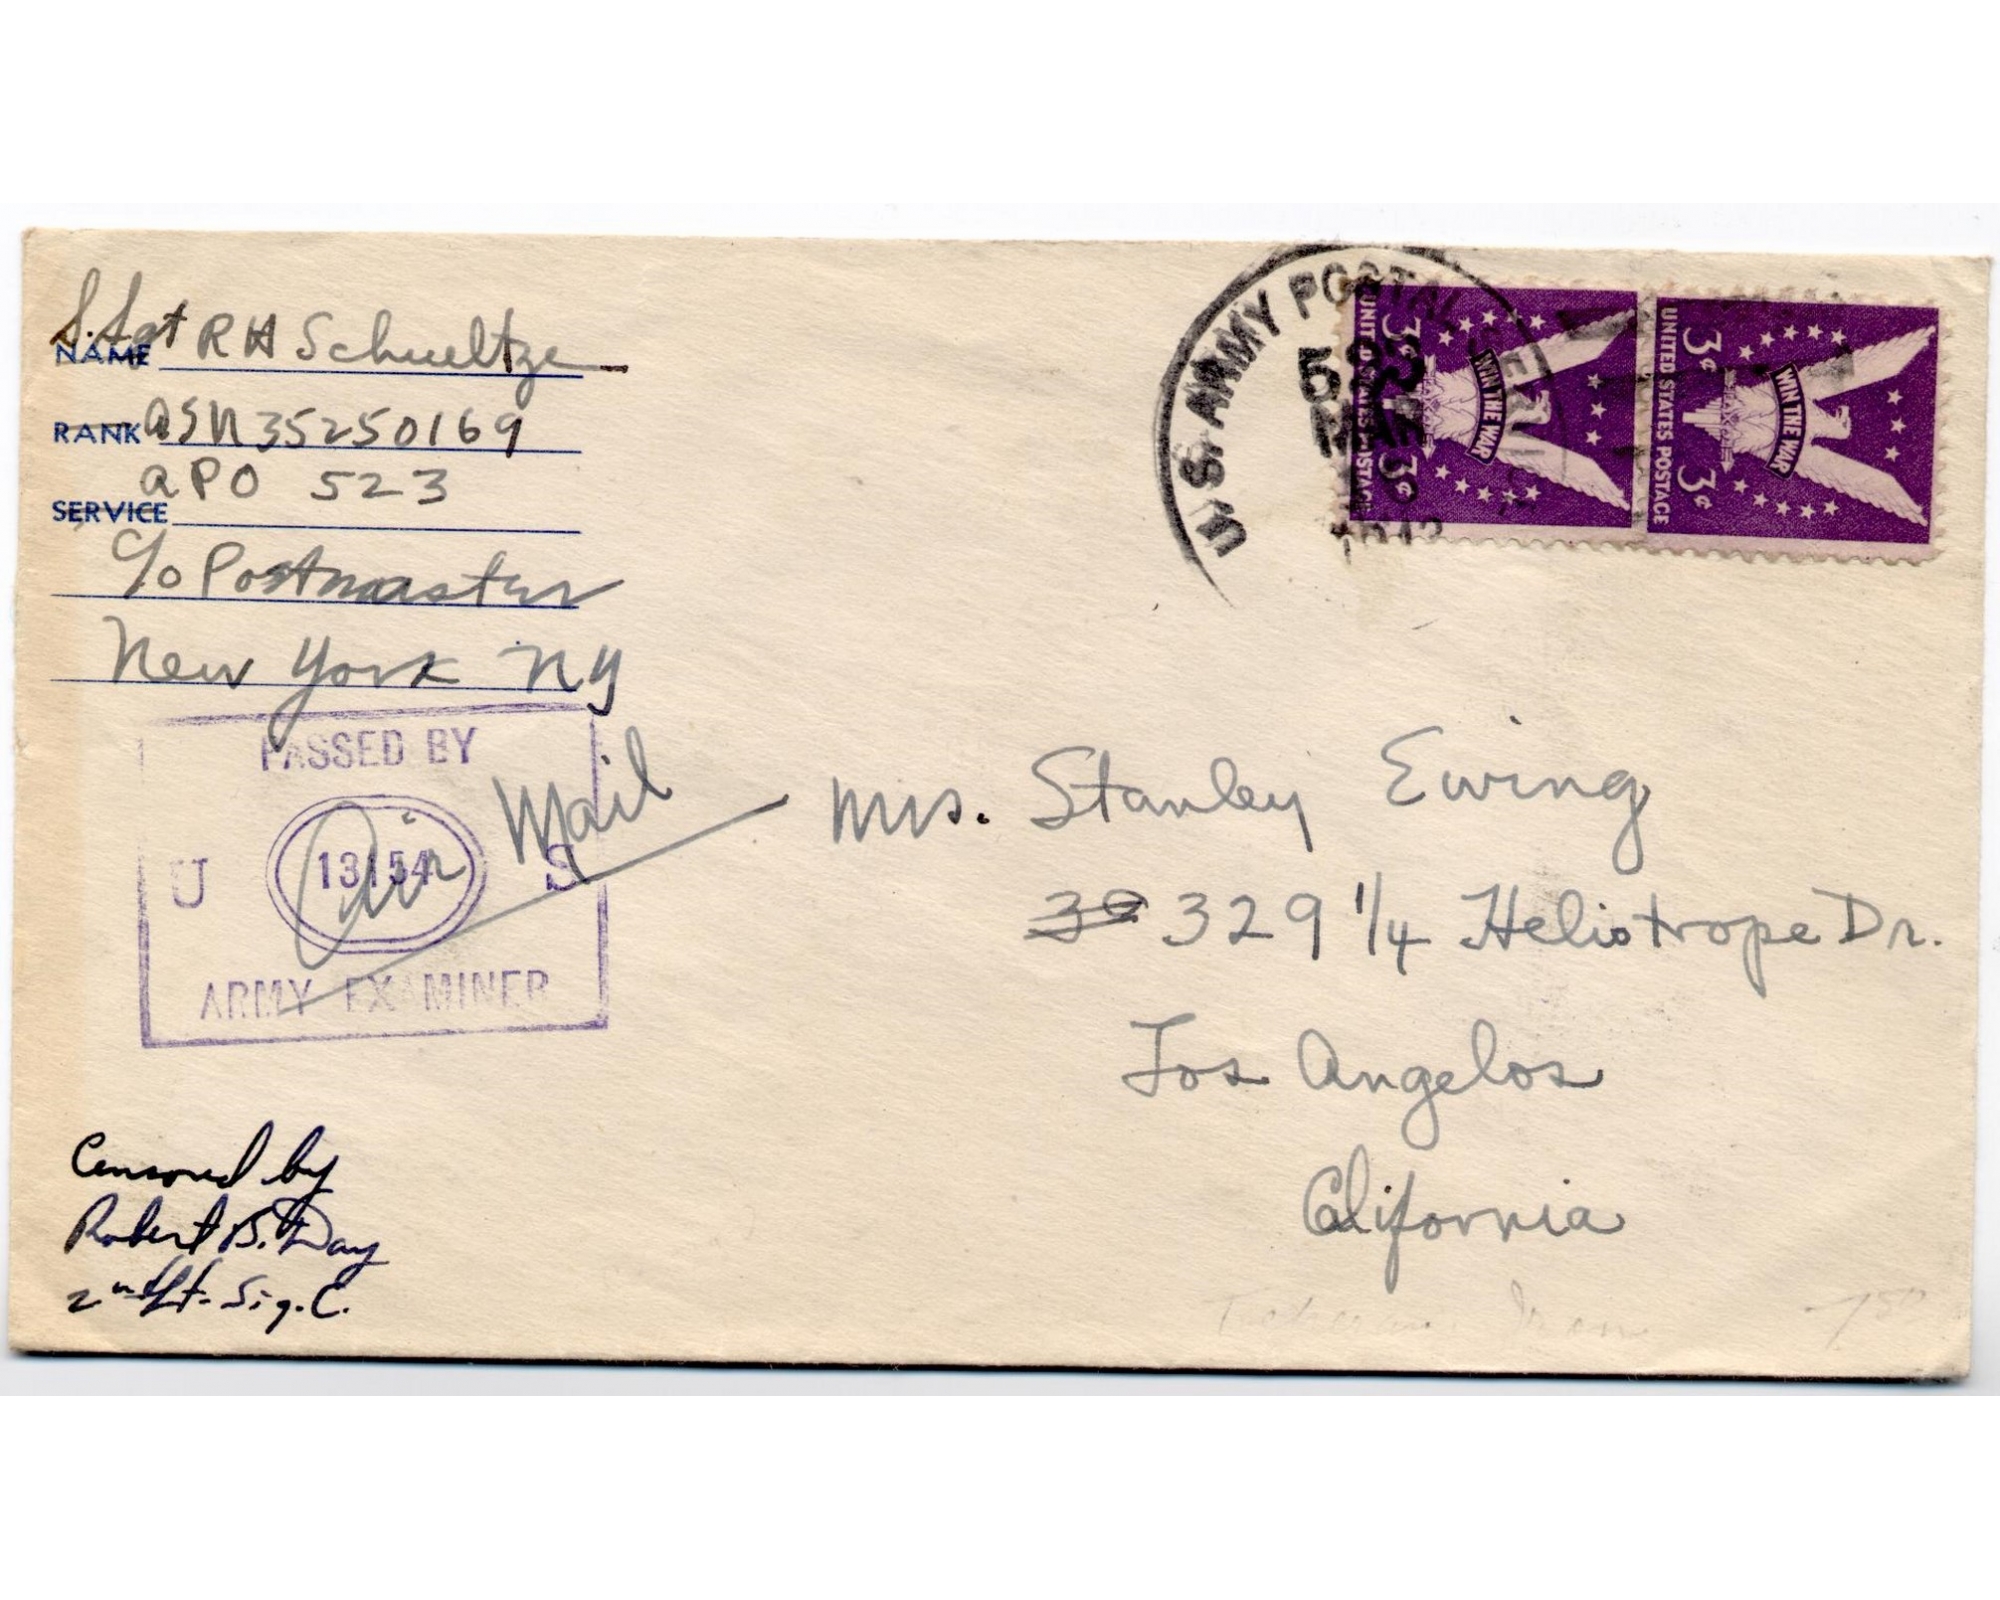 S. Sgt R H Schueltze
NAME
RANK ASN 35250169
APO 523
SERVICE
c/o Postmaster
New York NY
PASSED BY
U 13154 S
ARMY EXAMINER
Air Mail
Censored by
Robert B. Day
2nd Lt. Sig. C.
U. S. ARMY POSTAL
523
UNITED STATES POSTAGE
3¢ 3¢
WIN THE WAR
UNITED STATES POSTAGE
3¢ 3¢
WIN THE WAR
Mrs. Stanley Ewing
32 329 1/4 Heliotrope Dr.
Los Angelos
California